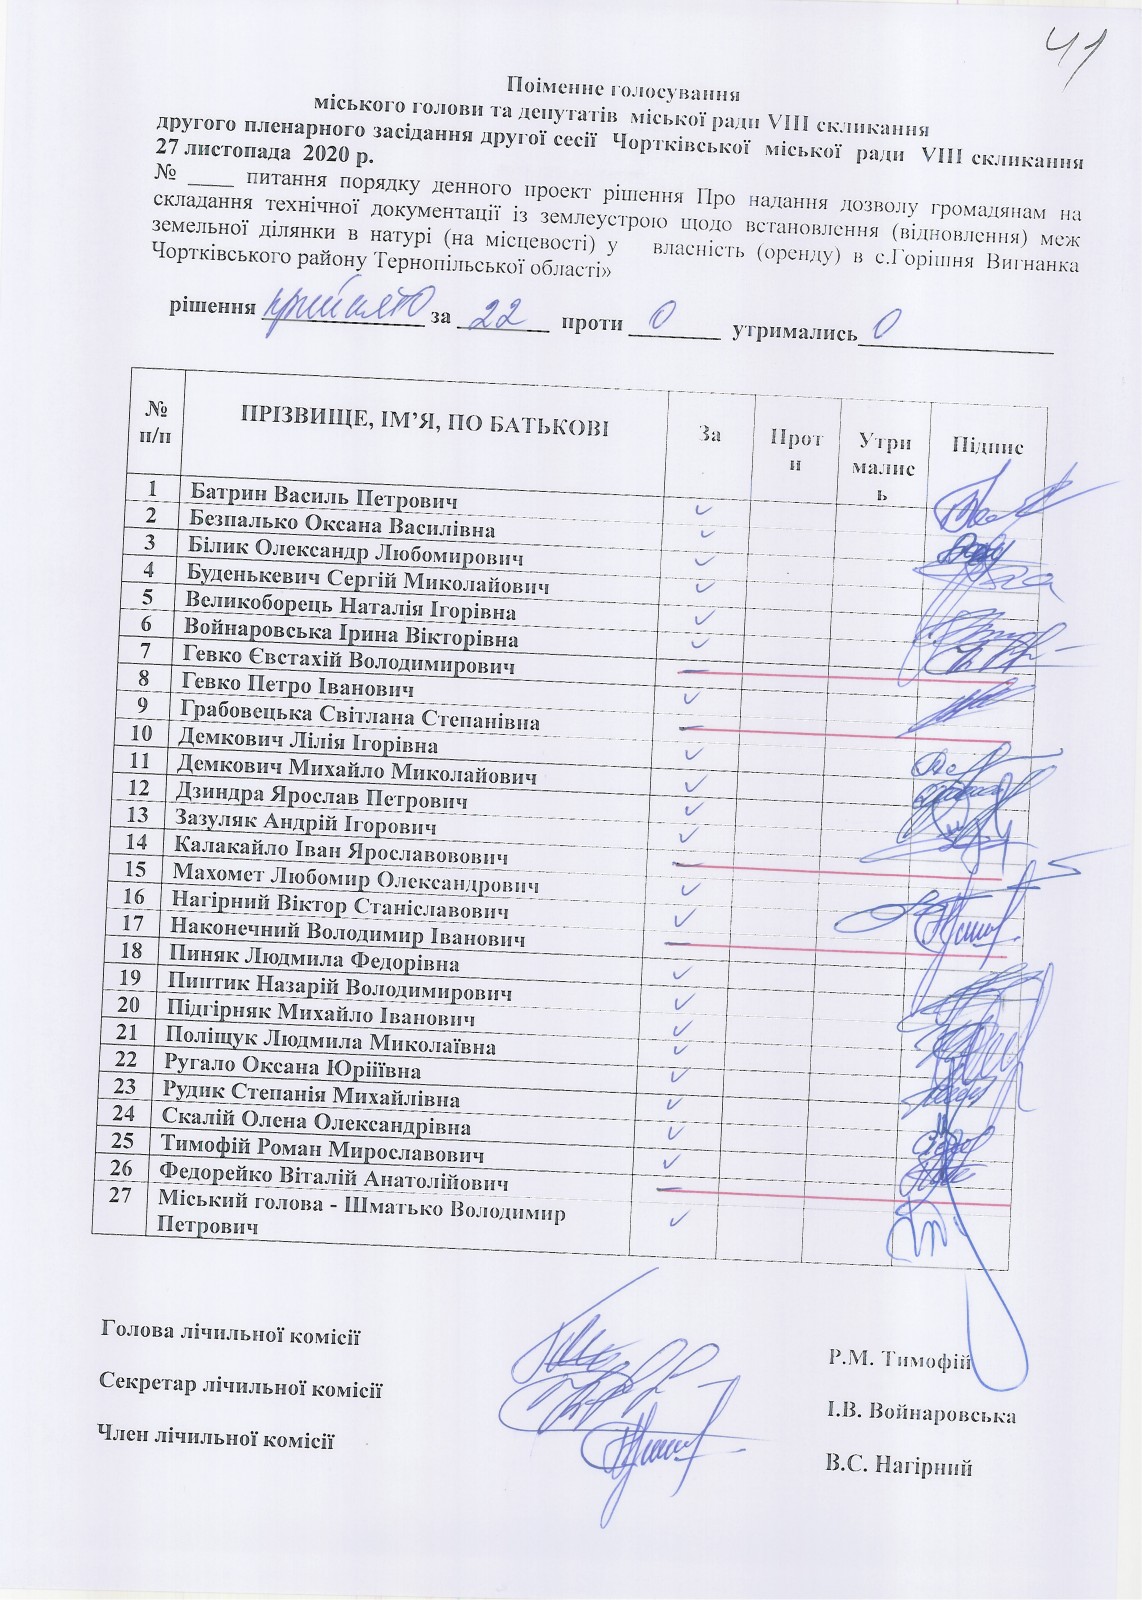 41
Поіменне голосування
міського голови та депутатів міської ради VIII скликання
другого пленарного засідання другої сесії Чортківської міської ради VIII скликання
27 листопада 2020 р.
№ ____ питання порядку денного проект рішення Про надання дозволу громадянам на
складання технічної документації із землеустрою щодо встановлення (відновлення) меж
земельної ділянки в натурі (на місцевості) у власність (оренду) в с.Горішня Вигнанка
Чортківського району Тернопільської області»
рішення прийнято за 22 проти 0 утримались 0
№ п/п ПРІЗВИЩЕ, ІМ’Я, ПО БАТЬКОВІ За Проти Утрималось Підпис
1 Батрин Василь Петрович
2 Безпалько Оксана Василівна
3 Білик Олександр Любомирович
4 Буденькевич Сергій Миколайович
5 Великоборець Наталія Ігорівна
6 Войнаровська Ірина Вікторівна
7 Гевко Євстахій Володимирович
8 Гевко Петро Іванович
9 Грабовецька Світлана Степанівна
10 Демкович Лілія Ігорівна
11 Демкович Михайло Миколайович
12 Дзиндра Ярослав Петрович
13 Зазуляк Андрій Ігорович
14 Калакайло Іван Ярославовович
15 Махомет Любомир Олександрович
16 Нагірний Віктор Станіславович
17 Наконечний Володимир Іванович
18 Пиняк Людмила Федорівна
19 Пиптик Назарій Володимирович
20 Підгірняк Михайло Іванович
21 Поліщук Людмила Миколаївна
22 Ругало Оксана Юріїївна
23 Рудик Степанія Михайлівна
24 Скалій Олена Олександрівна
25 Тимофій Роман Мирославович
26 Федорейко Віталій Анатолійович
27 Міський голова - Шматько Володимир
Петрович
Голова лічильної комісії Р.М. Тимофій
Секретар лічильної комісії І.В. Войнаровська
Член лічильної комісії В.С. Нагірний